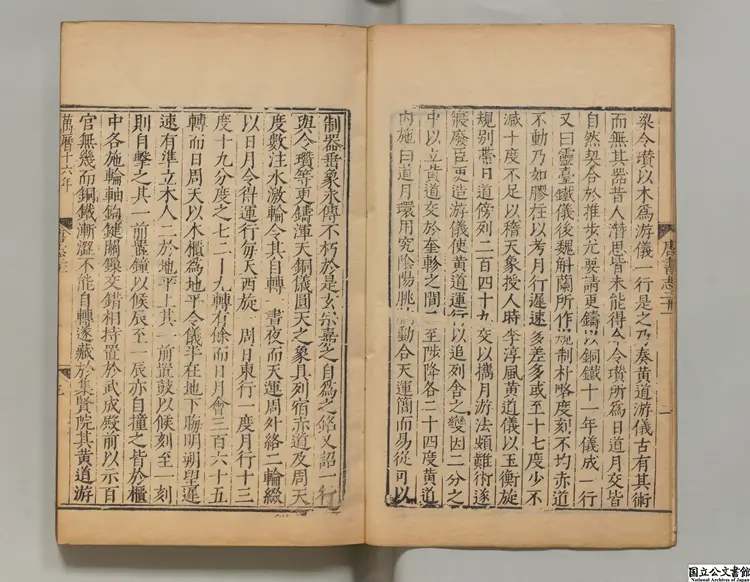 唐書志二十一
梁令瓚以木爲游儀一行是之乃奏黃道游儀古有其術
而無其器昔人潛思皆未能得今令瓚所爲日道月交皆
自然契合於推步尤要請更鑄以銅鐵十一年儀成一行
又曰靈臺鐵儀後魏斛蘭所作規制朴略度刻不均赤道
不動乃如膠柱以考月行遲速多差多或至十七度少不
減十度不足以稽天象授人時李淳風黃道儀以玉衡旋
規別帶日道傍列二百四十九交以攜月游法頗難術遂
寢廢臣更造游儀使黃道運行以追列舍之變因二分之
中以立黃道交於奎軫之間二至陟降各二十四度黃道
內施白道月環用究陰陽朓動合天運簡而易從可以
制器垂象永傳不朽於是玄宗嘉之自爲之銘又詔一行
與令瓚等更鑄渾天銅儀圓天之象具列宿赤道及周天
度數注水激輪令其自轉一晝夜而天運周外絡二輪綴
以日月令得運行每天西旋一周日東行一度月行十三
度十九分度之七二十九轉有餘而日月會三百六十五
轉而日周天以木櫃爲地平令儀半在地下晦明朔望遲
速有準立木人二於地平上其一前置鼓以候刻至一刻
則自擊之其一前置鐘以候辰至一辰亦自撞之皆於櫃
中各施輪軸鉤鍵關鎖交錯相持置於武成殿前以示百
官無幾而銅鐵漸澀不能自轉遂藏於集賢院其黃道游
萬曆十六年
国立公文書館
National Archives of Japan